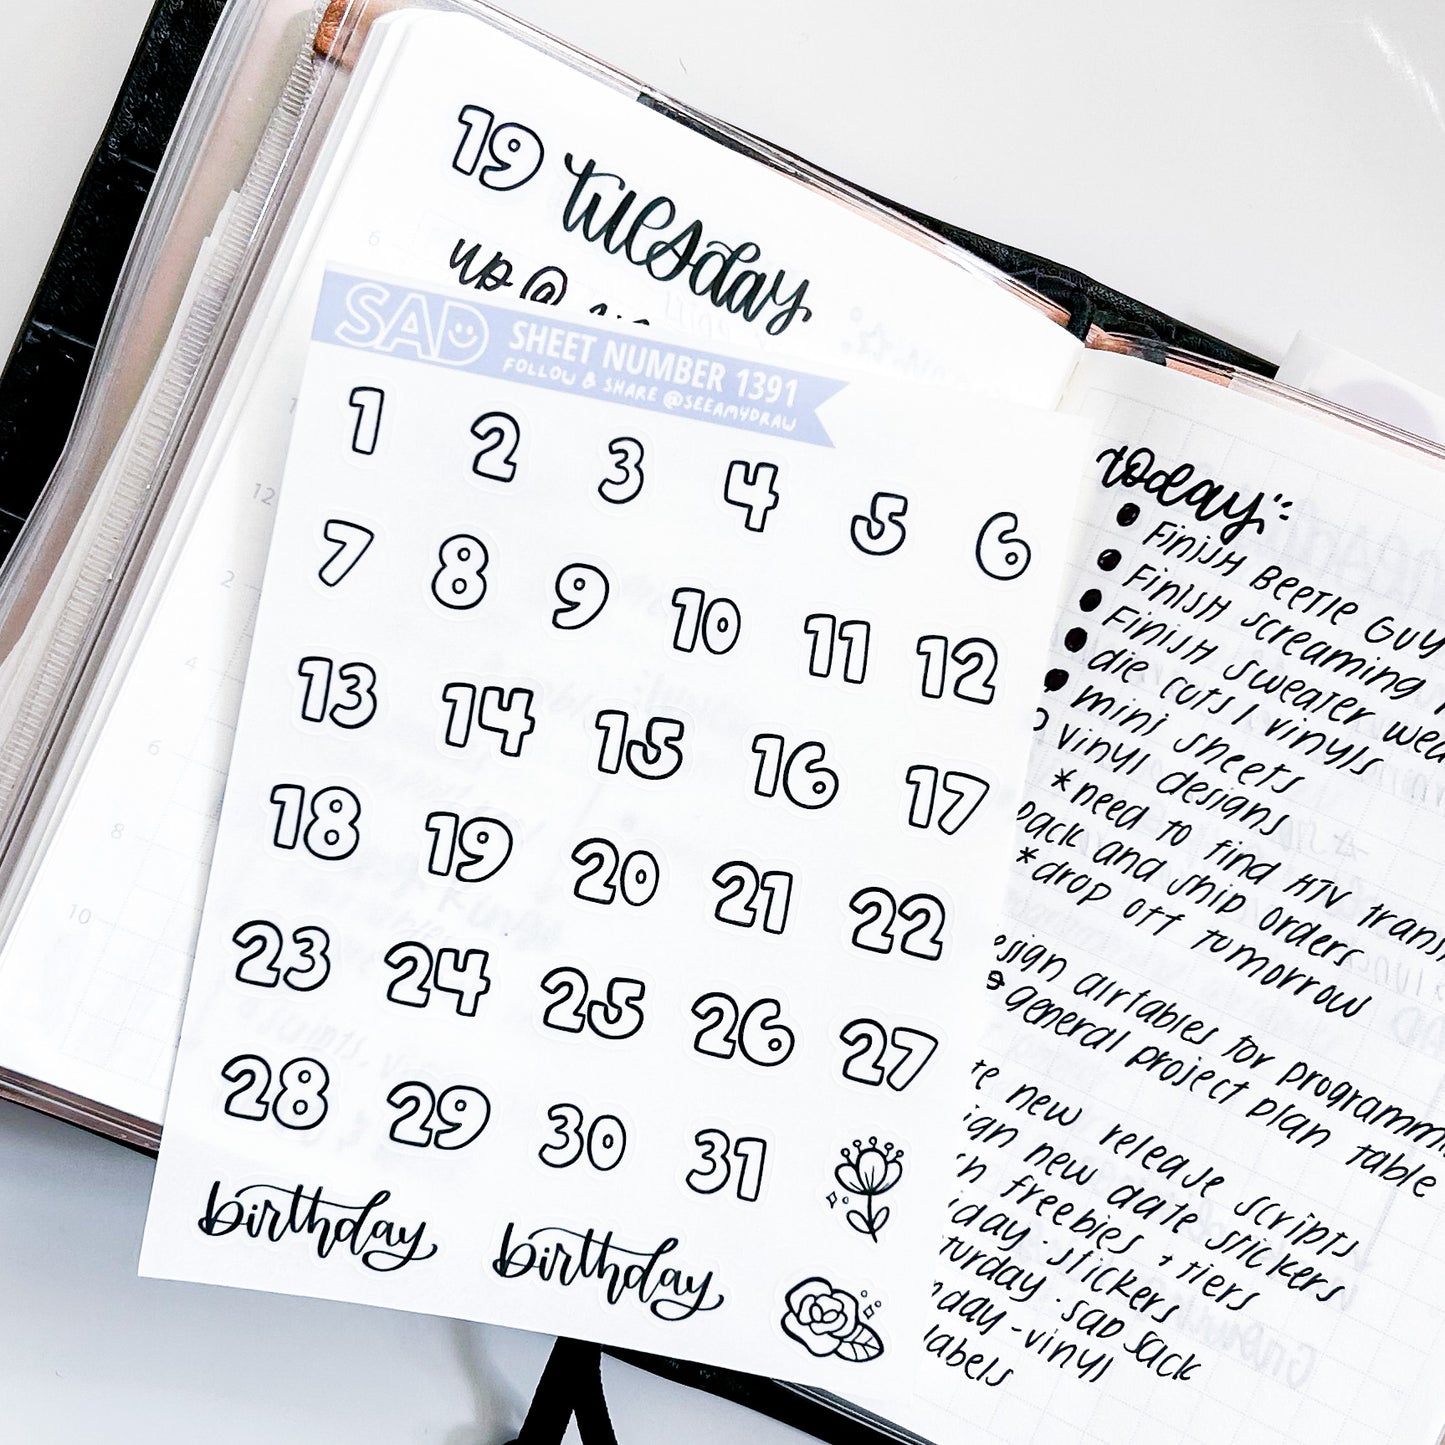 19 tuesday
up @
SAD SHEET NUMBER 1391
FOLLOW & SHARE @SEEAMYDRAW
1 2 3 4 5 6
7 8 9 10 11 12
13 14 15 16 17
18 19 20 21 22
23 24 25 26 27
28 29 30 31
birthday birthday
6
12
2
4
6
8
10
today:
FINISH BEETLE GUY
FINISH screaming
FINISH sweater
die cuts / vinyls
mini sheets
vinyl designs
*need to find HTV
pack and ship orders
*drop off tumorrow
airtables for
general project plan table
new release scripts
new date stickers
freebies + tiers
stickers
SAD Sack
vinyl
labels